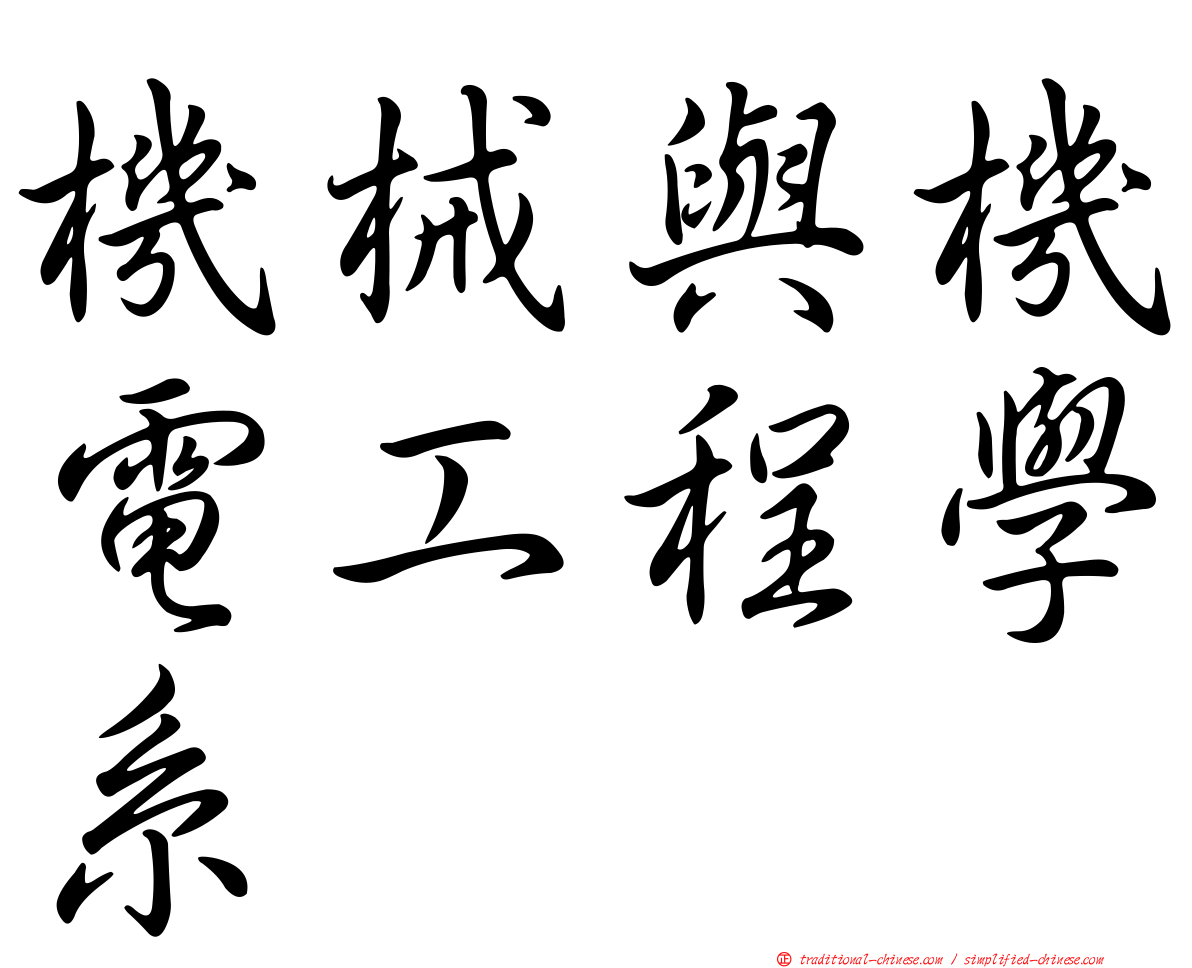 機械與機
電工程學
系
㊣ traditional-chinese.com / simplified-chinese.com